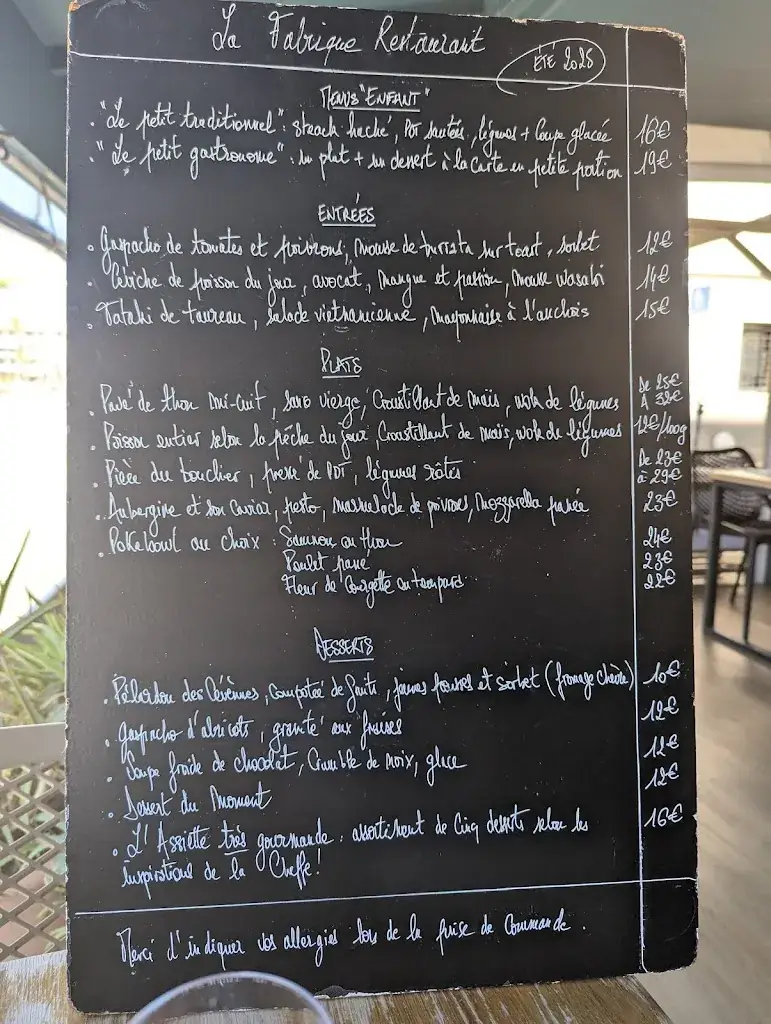 La Fabrique Restaurant
ÉTÉ 2025
MENUS "ENFANT"
. "Le petit traditionnel" : steack haché, PDT sautées, légumes + Coupe glacée 16€
. "Le petit gastronome" : un plat + un dessert à la carte en petite portion 19€
ENTRÉES
. Gaspacho de tomates et poivrons, mousse de burrata sur toast, sorbet 12€
. Céviche de poisson du jour, avocat, mangue et passion, mousse wasabi 14€
. Tataki de taureau, salade vietnamienne, mayonnaise à l'anchois 15€
PLATS
. Pavé de thon mi-cuit, sauce vierge, Croustillant de maïs, wok de légumes De 25€ À 32€
. Poisson entier selon la pêche du jour, Croustillant de maïs, wok de légumes 12€/100g
. Pièce du boucher, pressé de PDT, légumes rôtis De 23€ à 29€
. Aubergine et son caviar, pesto, marmelade de poivrons, mozzarella panée 23€
. Pokebowl au choix : Saumon ou thon 24€
Poulet pané 23€
Fleur de Courgette en tempura 22€
DESSERTS
. Pélardon des Cévennes, compotée de fruits, jeunes pousses et sorbet (fromage chèvre) 10€
. Gaspacho d'abricots, granité aux fraises 12€
. Soupe froide de chocolat, Crumble de noix, glace 12€
. Dessert du Moment 12€
. L'Assiette très gourmande : assortiment de Cinq desserts selon les 16€
inspirations de la Cheffe !
Merci d'indiquer vos allergies lors de la prise de Commande.